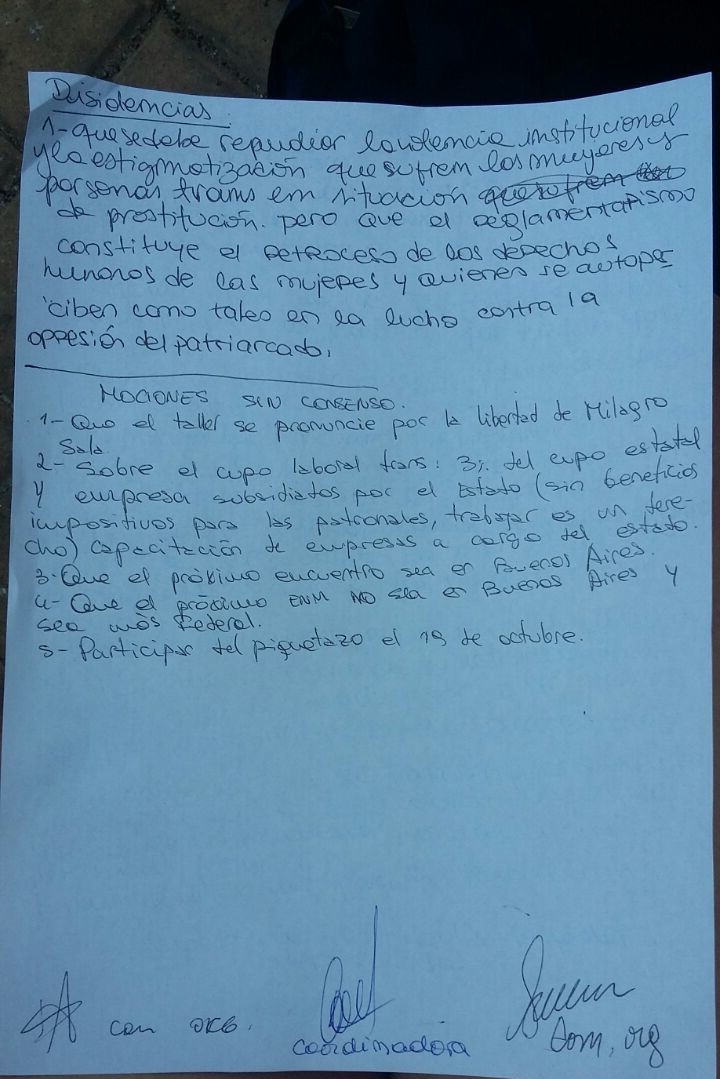 Disidencias:
1- que se debe repudiar la violencia institucional
y la estigmatización que sufren las mujeres y
personas trans en situación que sufren
de prostitución. pero que el reglamentarismo
constituye el retroceso de los derechos
humanos de las mujeres y quienes se autoper
ciben como tales en la lucha contra la
opresión del patriarcado.
MOCIONES SIN CONSENSO.
1- Que el taller se pronuncie por la libertad de Milagro
Sala.
2- Sobre el cupo laboral trans: 3% del cupo estatal
y empresa subsidiatos por el Estado (sin beneficios
impositivos para las patronales, trabajar es un dere-
cho) capacitación de empresas a cargo del estado.
3- Que el próximo encuentro sea en Buenos Aires.
4- Que el próximo ENM NO sea en Buenos Aires y
sea más Federal.
5- Participar del piquetazo el 19 de octubre.
com org.
coordinadora
com, org